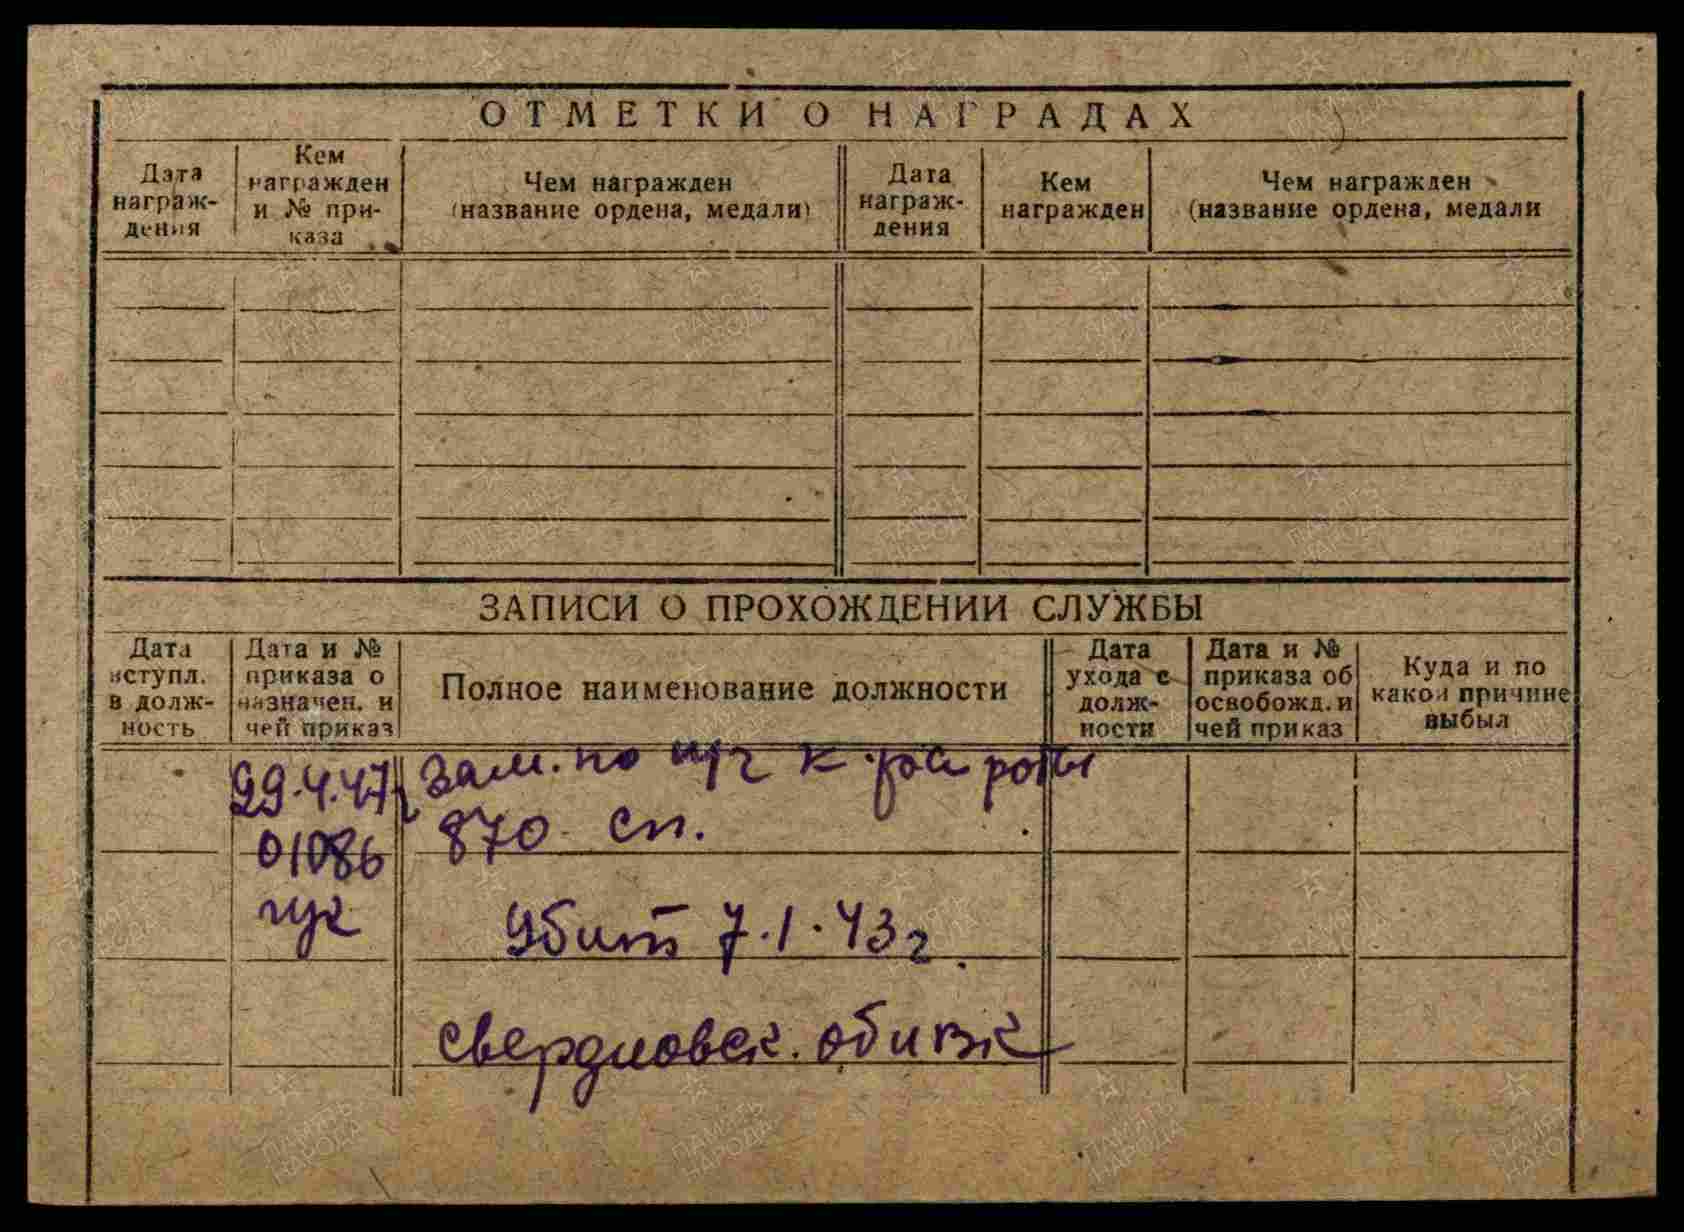 ОТМЕТКИ О НАГРАДАХ
Дата награж- дения
Кем награжден и № при- каза
Чем награжден (название ордена, медали)
Дата награж- дения
Кем награжден
Чем награжден (название ордена, медали
ЗАПИСИ О ПРОХОЖДЕНИИ СЛУЖБЫ
Дата вступл. в долж- ность
Дата и № приказа о назначен. и чей приказ
Полное наименование должности
Дата ухода с долж- ности
Дата и № приказа об освобожд. и чей приказ
Куда и по какой причине выбыл
29.4.47г Зам. по п/ч к. роты
01086 870 сп.
гук
Убит 7.1.43 г.
Свердловск. обл ВК
ПАМЯТЬ НАРОДА